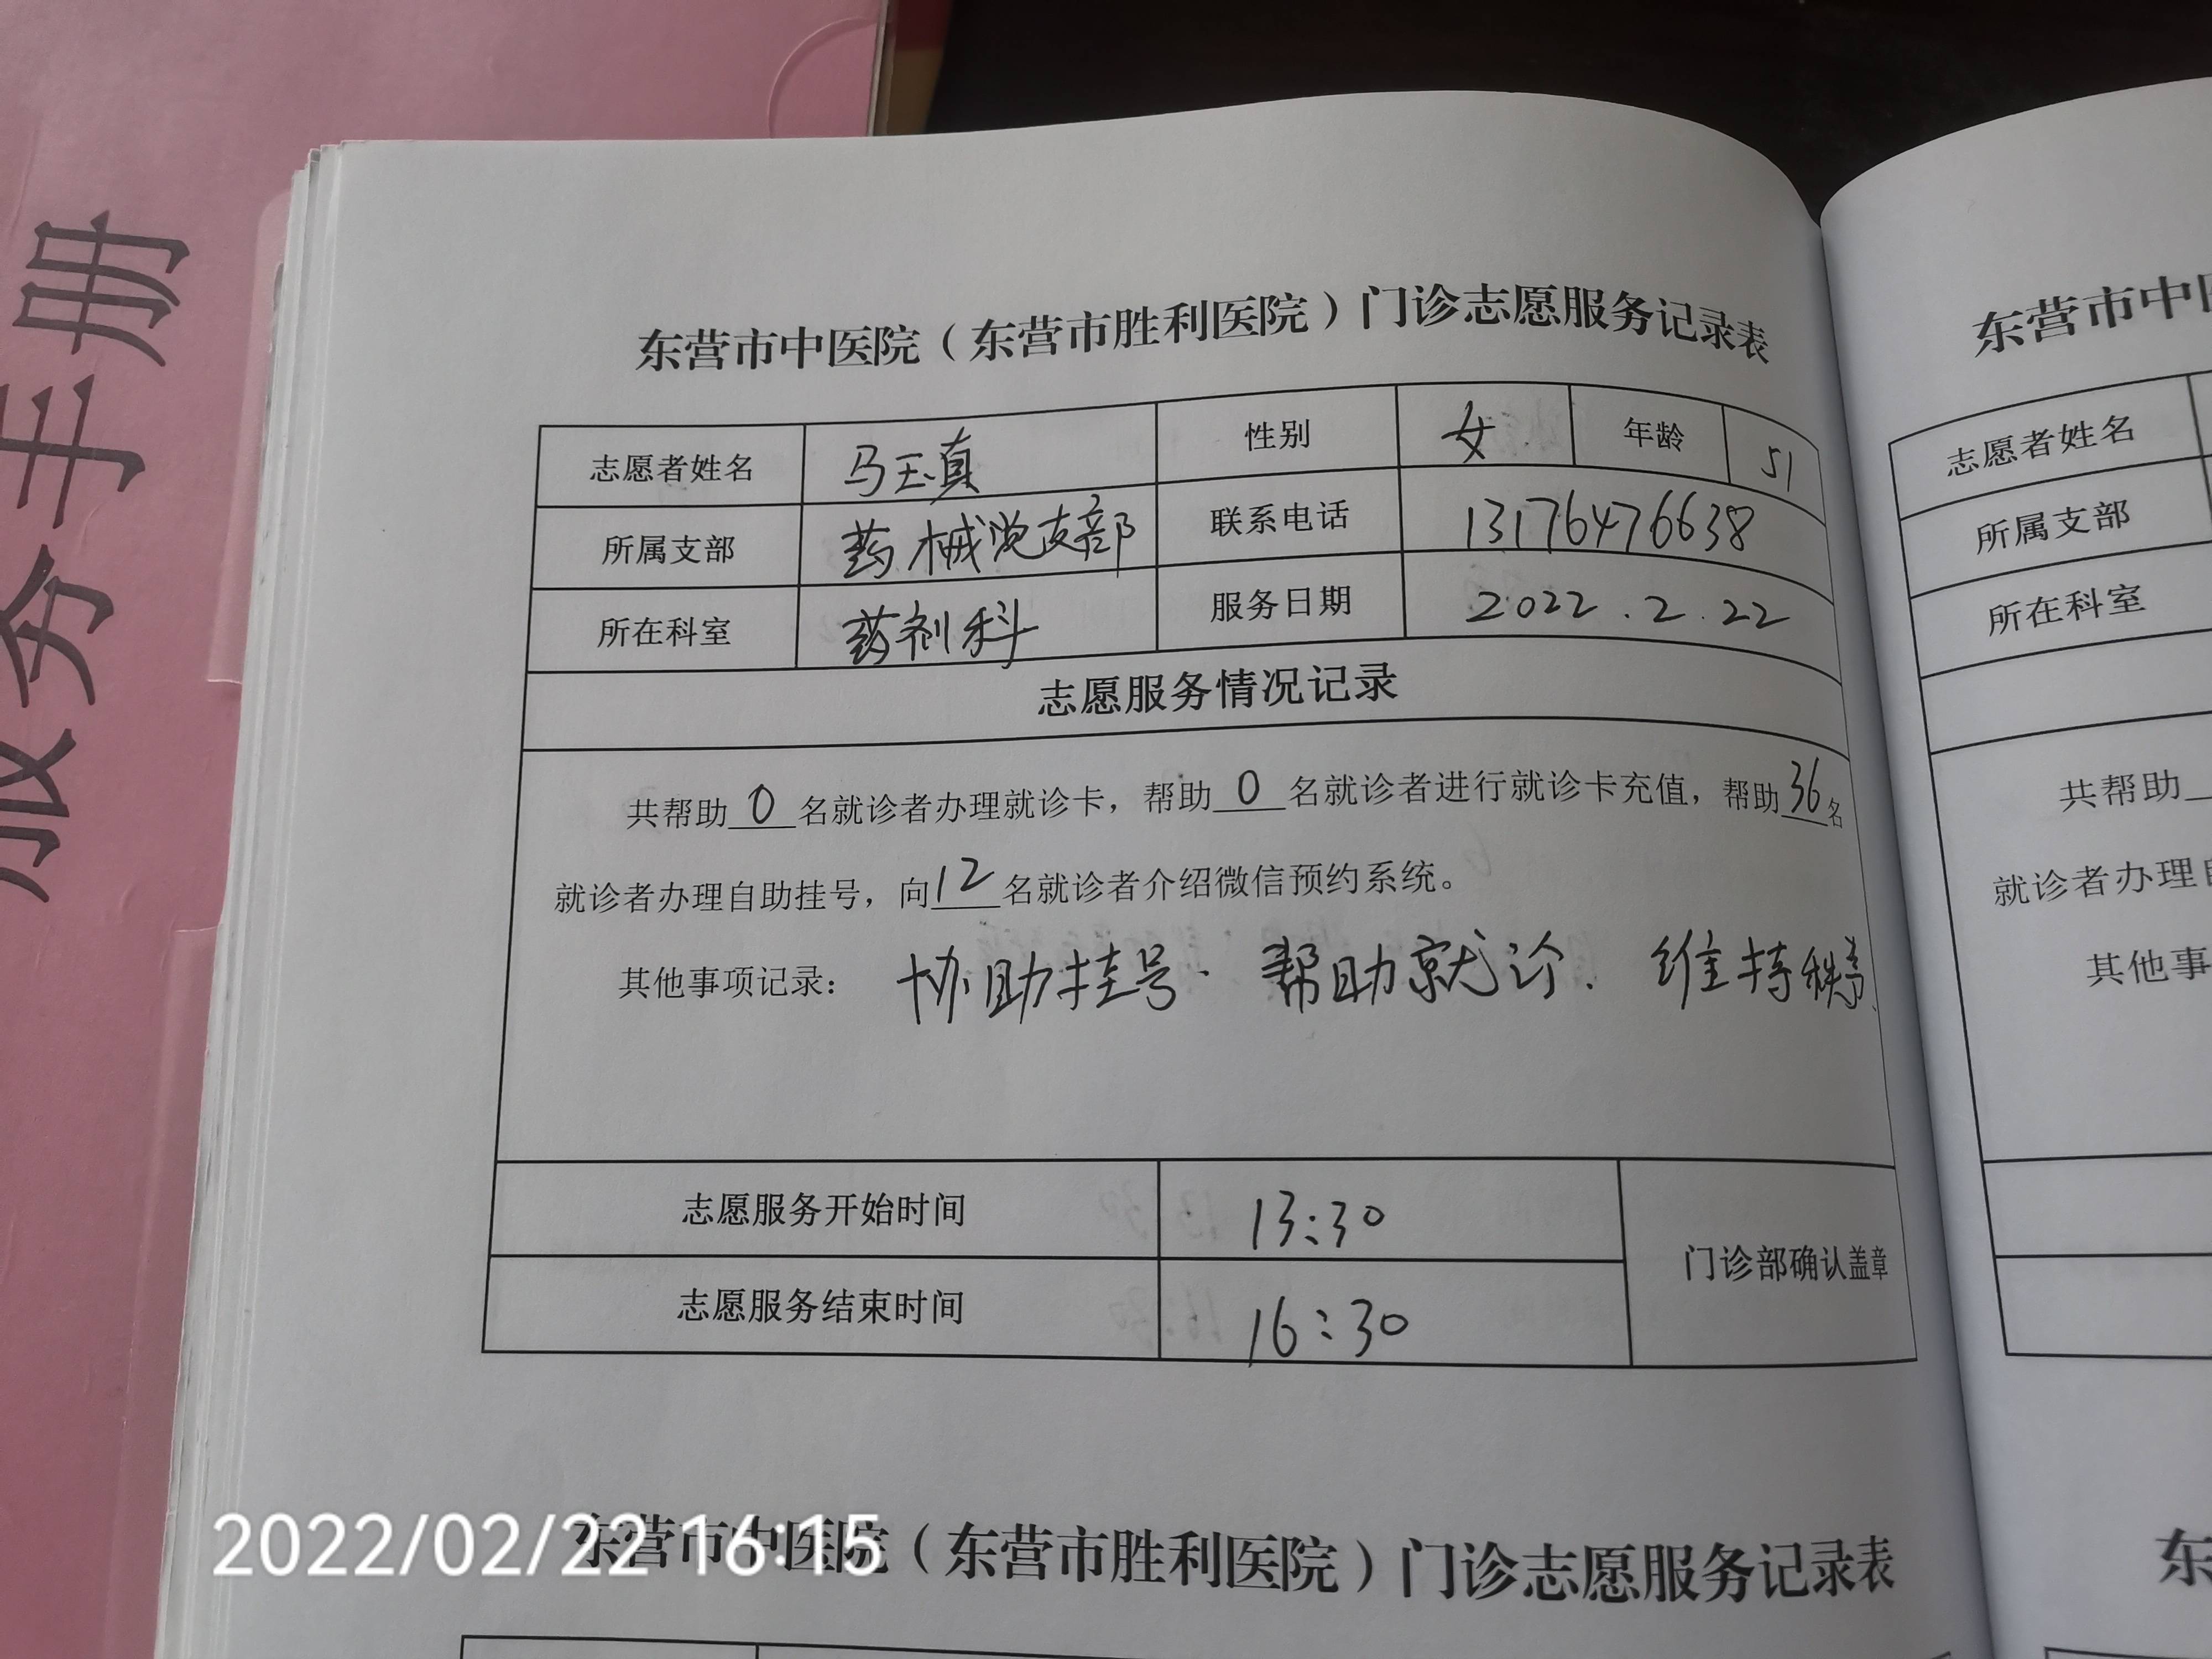 服务手册
东营市中医院（东营市胜利医院）门诊志愿服务记录表
志愿者姓名 马玉真 性别 女 年龄 51
所属支部 药械党支部 联系电话 13176476638
所在科室 药剂科 服务日期 2022.2.22
志愿服务情况记录
共帮助0名就诊者办理就诊卡，帮助0名就诊者进行就诊卡充值，帮助36名
就诊者办理自助挂号，向12名就诊者介绍微信预约系统。
其他事项记录： 协助挂号. 帮助就诊. 维持秩序.
志愿服务开始时间 13:30
门诊部确认盖章
志愿服务结束时间 16:30
东营市中医院（东营市胜利医院）门诊志愿服务记录表
2022/02/22 16:15
东营市中
志愿者姓名
所属支部
所在科室
共帮助
就诊者办理
其他事
东